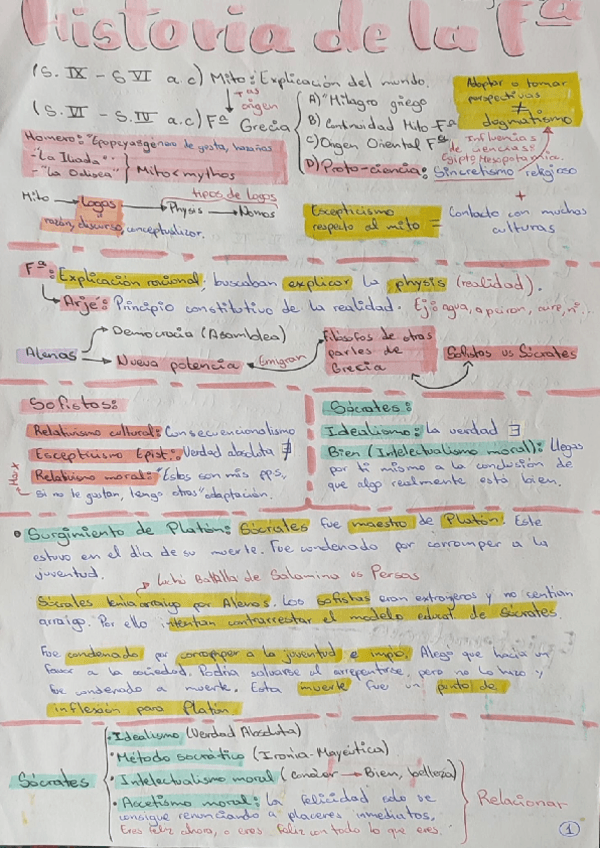 Historia de la Fª
(S. IX - S VI a.c) Mito: Explicación del mundo.
+ as origen
(S. VI - S. IV a.c) Fª Grecia
A) "Milagro griego
B) Continuidad Mito-Fª
C) Origen Oriental Fª
D) Proto-ciencia: Sincretismo religioso
Adoptar o tomar
perspectivas
≠
dogmatismo
Influencias
de Ciencias:
Egipto, Mesopotamia.
Homero: "Epopeyas género de gesta, hazañas
- "La Iliada"
- "La Odisea"
Mito < mythos
tipos de logos
Mito → Logos → Physis → Nomos
razón, discurso, conceptualizar.
Escepticismo
respecto al mito
=
+
Contacto con muchas
culturas
Fª: Explicación racional; buscaban explicar la physis (realidad).
Arjé: Principio constitutivo de la realidad. Ej: agua, apeiron, aire, nº...
Atenas
Democracia (Asamblea)
Nueva potencia
Emigran
Filósofos de otras
partes de
Grecia
Sofistas vs Sócrates
Sofistas:
Relativismo cultural: Consecuencionalismo
Escepticismo Epist.: Verdad absoluta ∄
Relativismo moral: "Estos son mis pps,
si no te gustan, tengo otros" adaptación.
Marx
Sócrates:
Idealismo: La verdad ∃
Bien (Intelectualismo moral): Llegas
por ti mismo a la conclusión de
que algo realmente está bien.
• Surgimiento de Platón: Sócrates fue maestro de Platón. Este
estuvo en el día de su muerte. Fue condenado por corromper a la
juventud.
Luchó Batalla de Salamina vs Persas
Sócrates tenía arraigo por Atenas. Los sofistas eran extranjeros y no sentían
arraigo. Por ello intentan contrarrestar el modelo educat. de Sócrates.
Fue condenado por corromper a la juventud e impío. Alegó que hacía un
favor a la sociedad. Podría salvarse al arrepentirse, pero no lo hizo y
fue condenado a muerte. Esta muerte fue un punto de
inflexión para Platón.
Sócrates
• Idealismo (Verdad Absoluta)
• Método socrático (Ironía-Mayéutica)
• Intelectualismo moral (conocer → Bien, belleza)
• Ascetismo moral: La felicidad solo se
consigue renunciando a placeres inmediatos,
Eres feliz ahora, o eres feliz con todo lo que eres.
Relacionar
1